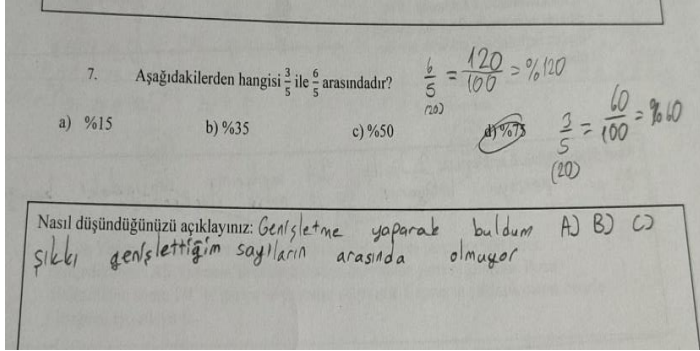 7. Aşağıdakilerden hangisi 3/5 ile 6/5 arasındadır?
6/5 = 120/100 = %120
(20)
a) %15 b) %35 c) %50 d) %75
3/5 = 60/100 = %60
(20)
Nasıl düşündüğünüzü açıklayınız: Genişletme yaparak buldum A) B) C)
şıkkı genişlettiğim sayıların arasında olmuyor